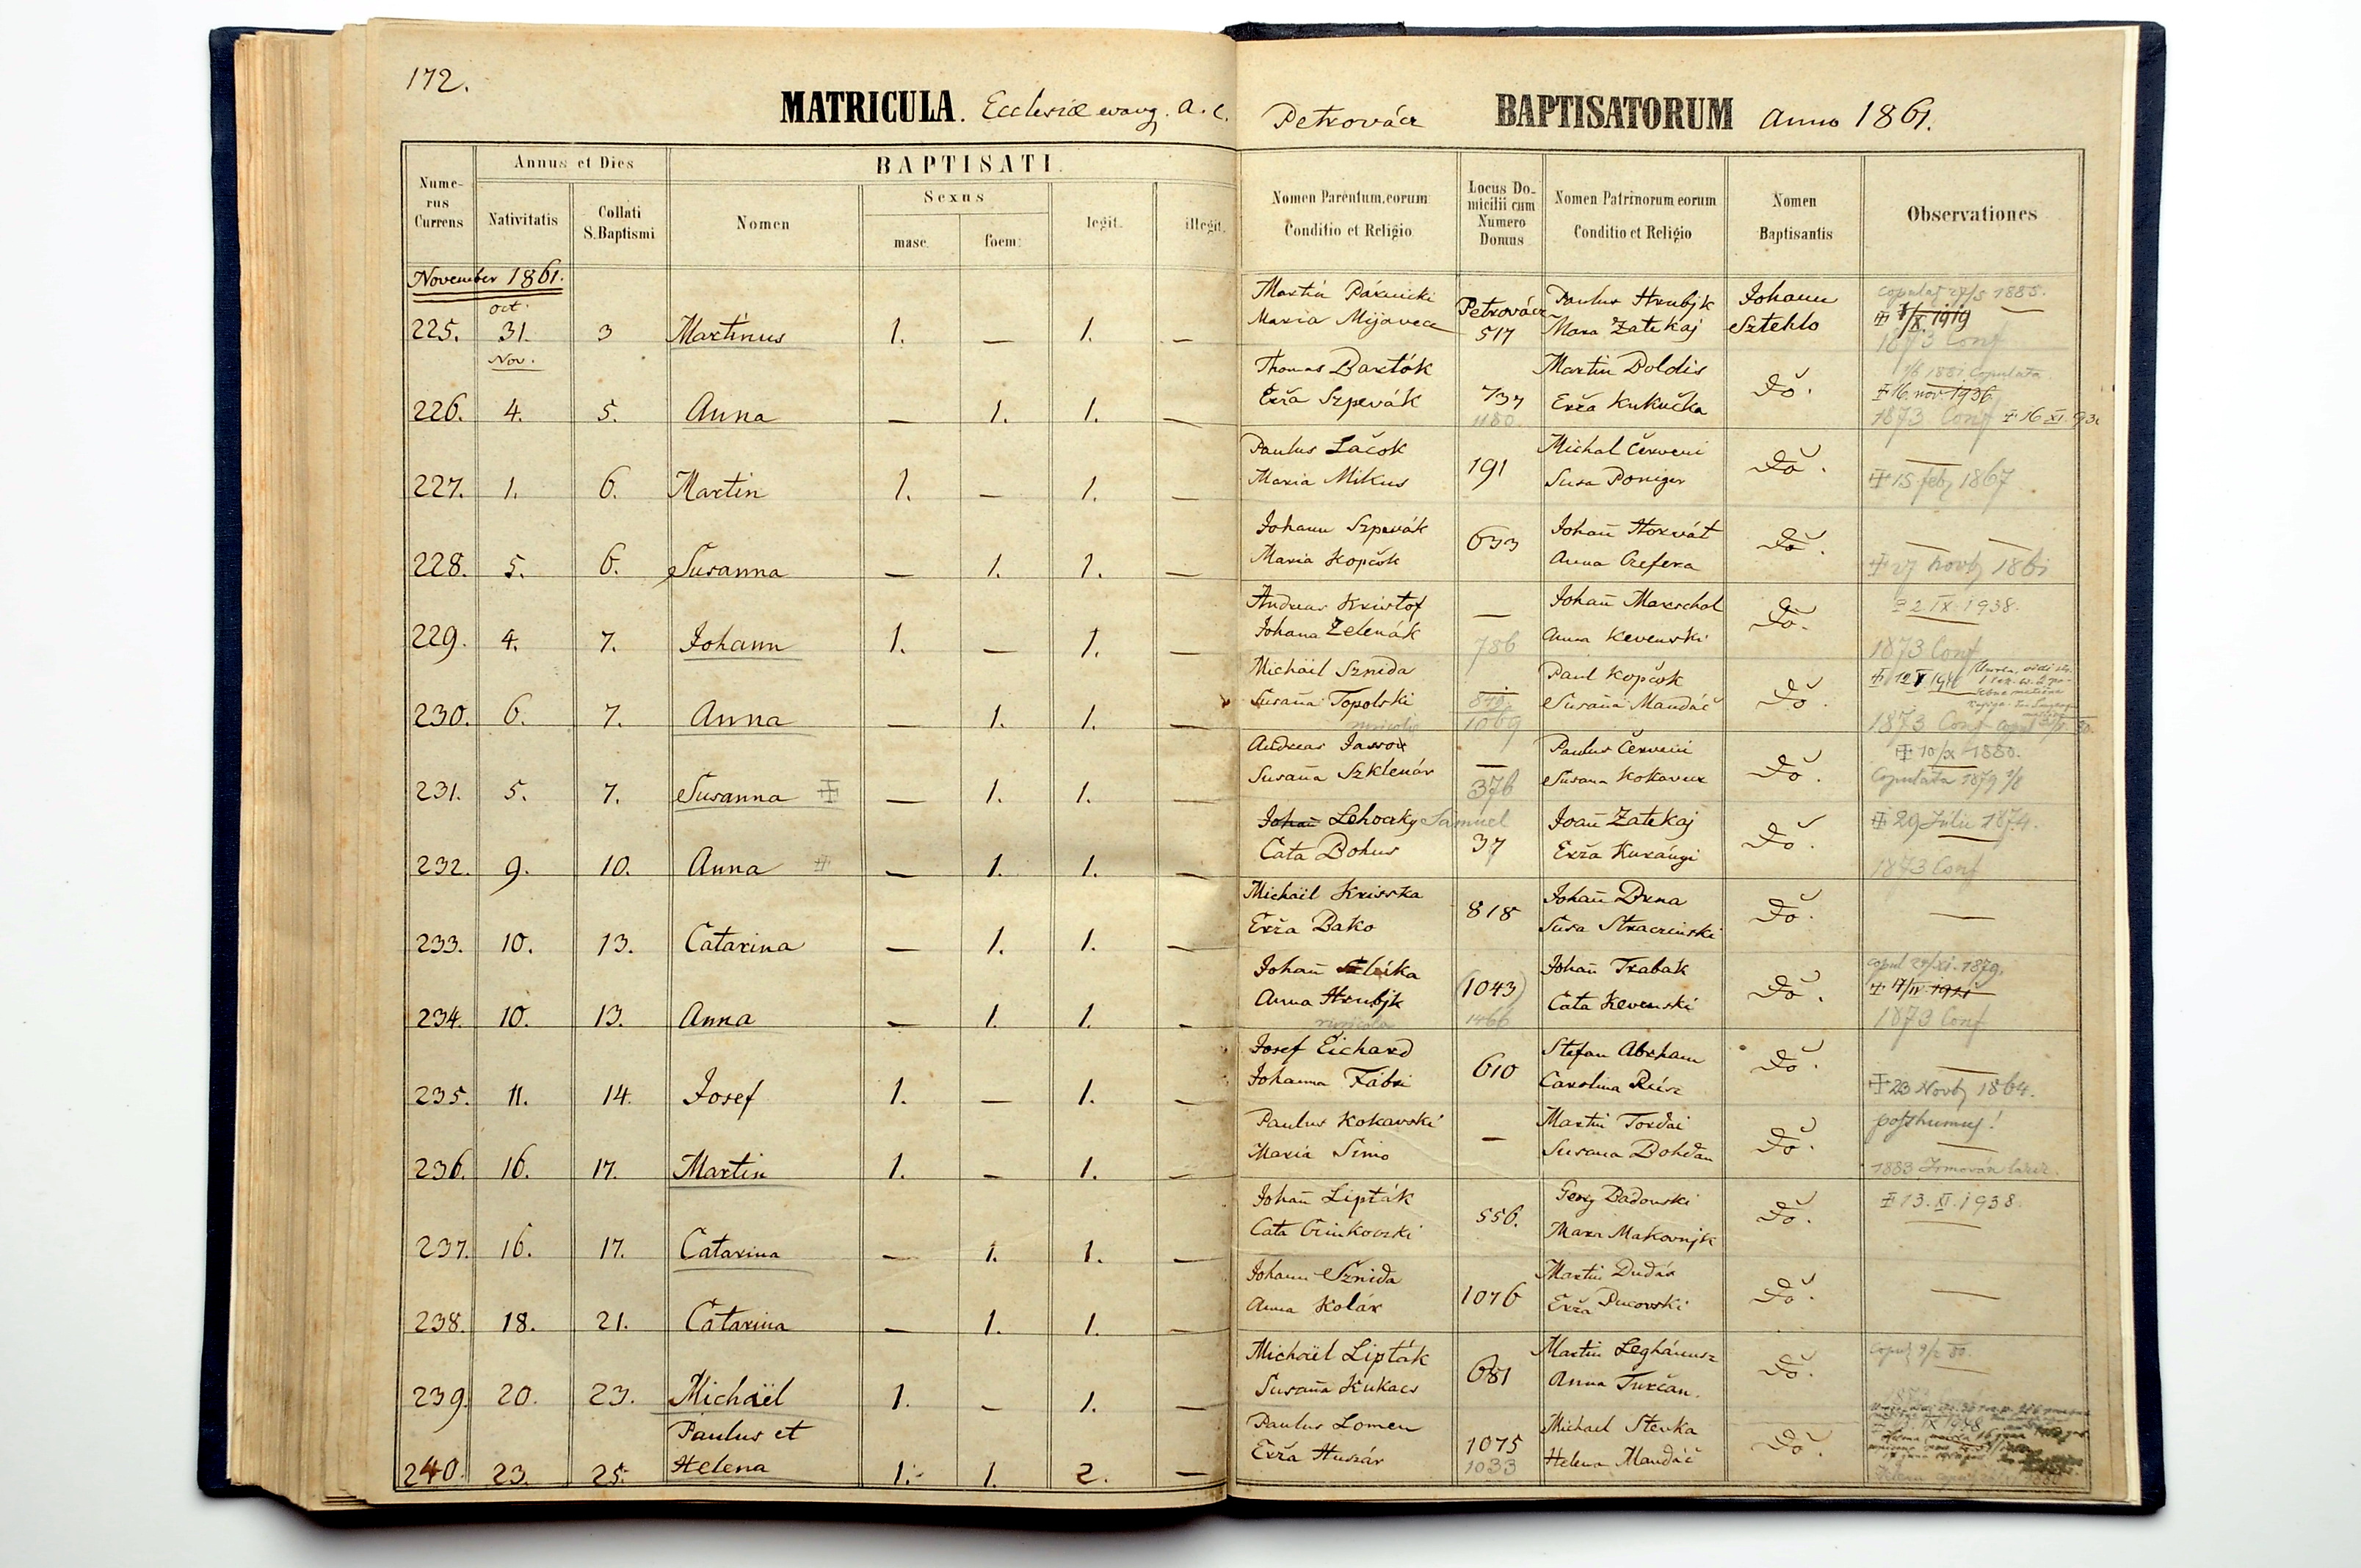 172.
MATRICULA. Ecclesiæ evang. a. c. Petrovácz BAPTISATORUM Anno 1861.
Nume-rus Currens
Annus et Dies
Nativitatis
Collati S. Baptismi
BAPTISATI.
Nomen
Sexus
masc.
foem.
legit.
illegit.
Nomen Parentum, eorum Conditio et Religio
Locus Do-micilii cum Numero Domus
Nomen Patrinorum eorum Conditio et Religio
Nomen Baptisantis
Observationes
November 1861.
Oct.
225. 31. 3 Martinus 1. — 1. —
Martin Páxnicki
Maria Mijavec
Petrovácz 517
Paulus Hrubjk
Mara Zatekaj
Johann Sztehlo
Copulat 1885.
1919
1873 Conf
Nov.
226. 4. 5. Anna — 1. 1. —
Thomas Bartók
Erža Szpevák
737
1180
Martin Boldis
Erža Kukučka
do.
1881 Copulata
16. nov 1936
1873 Conf
227. 1. 6. Martin 1. — 1. —
Paulus Lačok
Maria Mikus
191
Michal Červeni
Susa Poniger
do.
15 feb 1867
228. 5. 6. Susanna — 1. 1. —
Johann Szpevák
Maria Kopčok
633
Johañ Horvát
Anna Cefera
do.
27 Novb 1861
229. 4. 7. Johann 1. — 1. —
Andreas Kristof
Johana Zelenák
—
786
Johañ Marschal
Anna Kevenski
do.
2 IX. 1938.
1873 Conf
230. 6. 7. Anna — 1. 1. —
Michäil Sznida
Susaña Topolski
1069
Paul Kopčok
Susaña Mandáč
do.
1873 Conf
231. 5. 7. Susanna — 1. 1. —
Andreas
Susaña Szklenár
—
376
Paulus Červeni
Susana Kokavec
do.
10/x 1880.
Copulata 1879
232. 9. 10. Anna — 1. 1. —
Johañ Lehoczky Samuel
Cata Bohus
37
Joañ Zatekaj
Erža Kurángi
do.
29 Julii 1874.
1873 Conf
233. 10. 13. Catarina — 1. 1. —
Michäil Krisska
Erža Bako
818
Johañ Drna
Susa Straczinski
do.
—
234. 10. 13. Anna — 1. 1. —
Johañ
Anna Hrubjk
(1043)
1466
Johañ Trabak
Cata Kevenski
do.
copul 1879.
1873 Conf
235. 11. 14. Josef 1. — 1. —
Josef Eichard
Johanna Fábri
610
Stefan Abrham
Carolina
do.
23 Novb 1864.
236. 16. 17. Martin 1. — 1. —
Paulus Kokavski
Maria Simo
—
Martin Tordai
Susana Bohdan
do.
posthumus!
1883
237. 16. 17. Catarina — 1. 1. —
Johañ Lipták
Cata Činkovski
556.
Georg Badonski
Mara Makovnjk
do.
13. XI. 1938.
238. 18. 21. Catarina — 1. 1. —
Johann Sznida
Anna Kolár
1076
Martin Dudás
Erža Pucovski
do.
—
239. 20. 23. Michäel 1. — 1. —
Michäel Lipták
Susaña Kukacs
681
Martin
Anna Turčan.
do.
240. 23. 25. Paulus et
Helena 1. 1. 2. —
Paulus Lomen
Erža Huszár
1075
1033
Michael Stenka
Helena Mandáč
do.